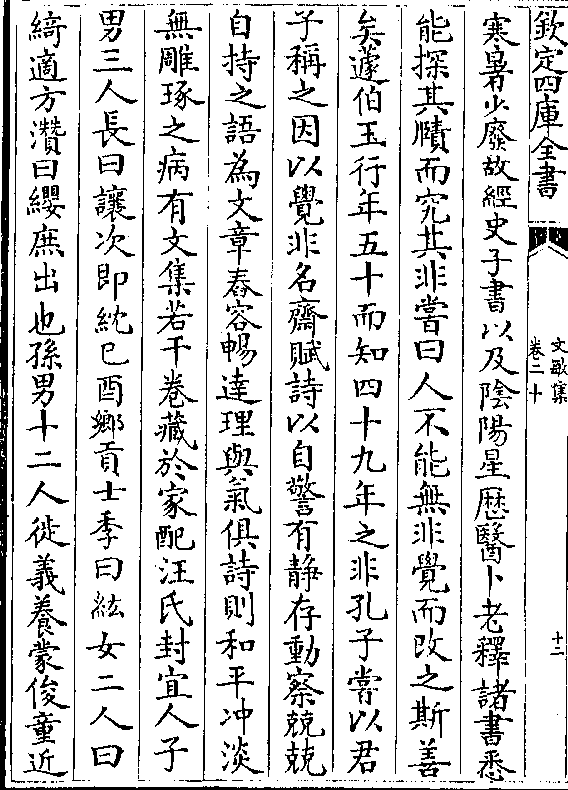 欽定四庫全書
文敏集
卷二十
十二
寒暑少廢故經史子書以及陰陽星厯醫卜老釋諸書悉
能探其賾而究其非嘗曰人不能無非覺而改之斯善
矣蘧伯玉行年五十而知四十九年之非孔子嘗以君
子稱之因以覺非名齋賦詩以自警有静存動察兢兢
自持之語為文章舂容暢達理與氣俱詩則和平冲淡
無雕琢之病有文集若干卷藏於家配汪氏封宜人子
男三人長曰讓次即紞已酉鄉貢士季曰紘女二人曰
綺適方瓚曰纓庶出也孫男十二人從義養蒙俊童近